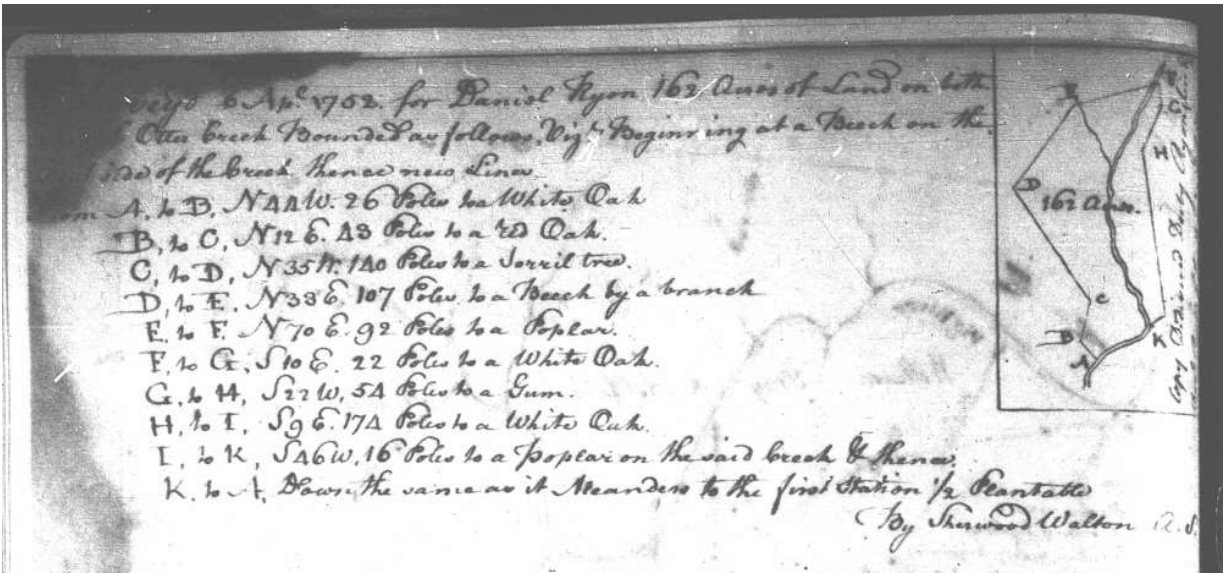 veyd 6 Apl. 1752. for Daniel Ryon 162 Acres of Land on both
Otter Creek Bounded as follows, Vizt. Beginning at a Beech on the
side of the Creek thence new Lines
om A, to B, N44W. 26 Poles to a White Oak
B, to C, N12E. 48 Poles to a red Oak.
C, to D, N35W. 140 Poles to a Sorril tree.
D, to E, N38E. 107 Poles to a Beech by a branch
E. to F. N70E. 92 Poles to a Poplar.
F, to G, S10E. 22 Poles to a White Oak.
G, to H, S22W, 54 Poles to a Gum.
H, to I, S9E. 174 Poles to a White Oak.
I, to K, S46W, 16 Poles to a Poplar on the said Creek & thence.
K. to A, Down the same as it Meanders to the first Station 1/2 Plantable
By Sherwood Walton A.S.
E
F
G
H
D
162 Acres.
C
B
A
K
Copy Delivered